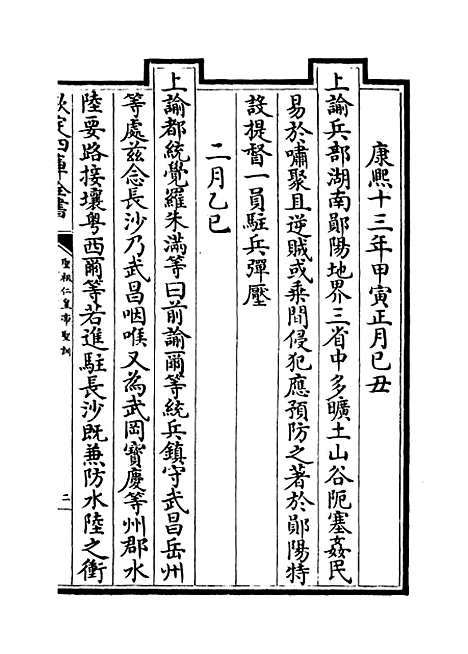 康熙十三年甲寅正月己丑
上諭兵部湖南鄖陽地界三省中多曠土山谷阨塞姦民
易於嘯聚且逆賊或乗間侵犯應預防之著於鄖陽特
設提督一員駐兵彈壓
二月乙巳
上諭都統覺羅朱滿等曰前諭爾等統兵鎮守武昌岳州
等處兹念長沙乃武昌咽喉又為武岡寳慶等州郡水
陸要路接壤粤西爾等若進駐長沙既兼防水陸之衝
欽定四庫全書
聖祖仁皇帝聖訓
二